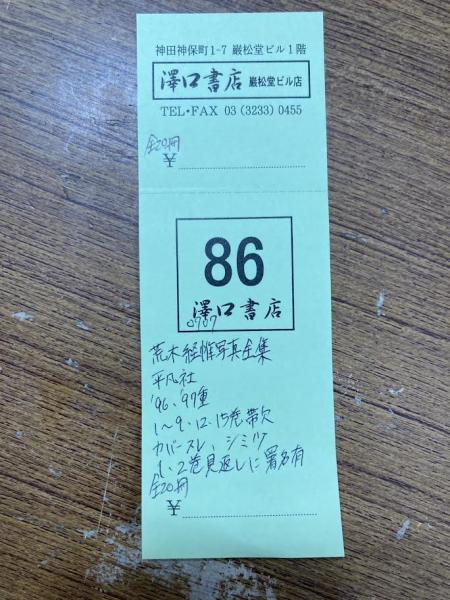 神田神保町1-7 巖松堂ビル1階
澤口書店 巖松堂ビル店
TEL・FAX 03 (3233) 0455
全20冊
¥
86
澤口書店
0707
荒木経惟写真全集
平凡社
'96、'97重
1〜9、12、15巻帯欠
カバースレ、シミ
1、2巻見返しに署名有
全20冊
¥